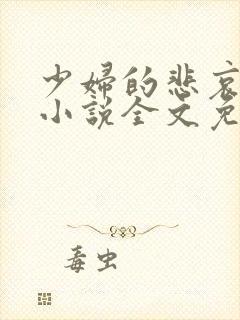 少婦的悲哀
小說全文免
毒虫